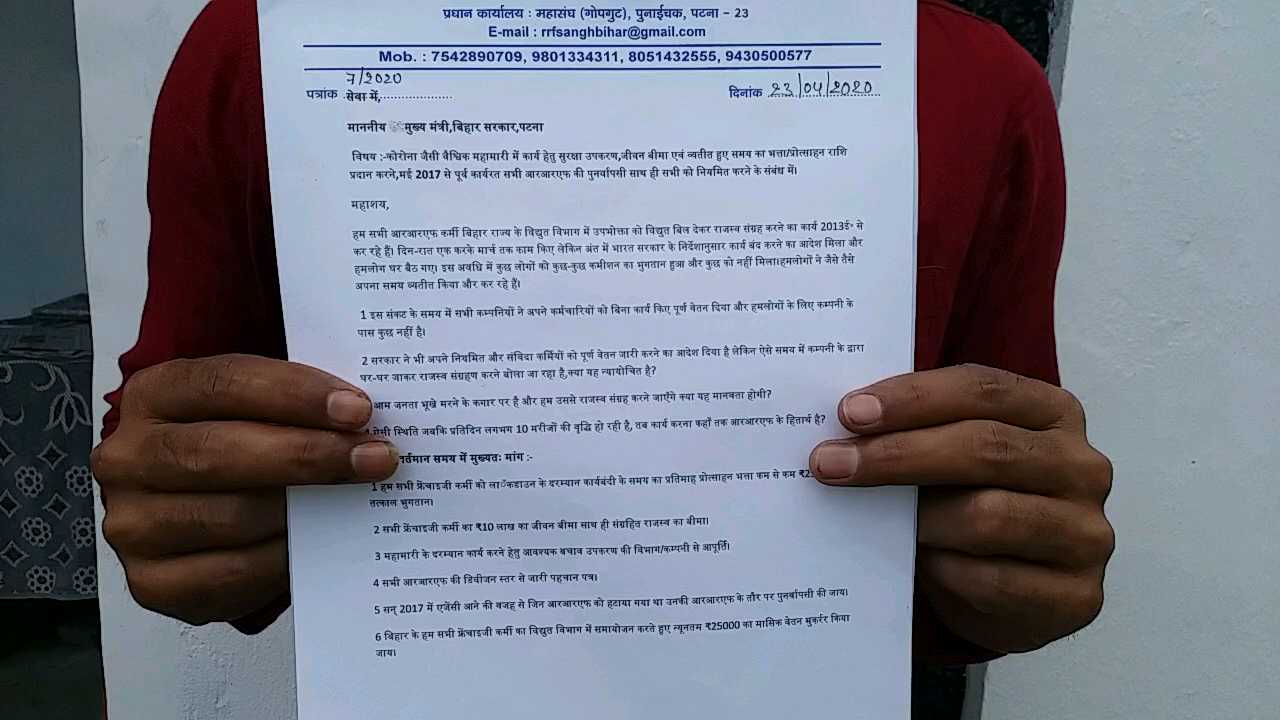 प्रधान कार्यालय : महासंघ (गोपगुट), पुनाईचक, पटना – 23
E-mail : rrfsanghbihar@gmail.com
Mob. : 7542890709, 9801334311, 8051432555, 9430500577
7/2020
पत्रांक सेवा में,.................... दिनांक 23/04/2020
माननीय मुख्य मंत्री,बिहार सरकार,पटना
विषय :-कोरोना जैसी वैश्विक महामारी में कार्य हेतु सुरक्षा उपकरण,जीवन बीमा एवं व्यतीत हुए समय का भत्ता/प्रोत्साहन राशि
प्रदान करने,मई 2017 से पूर्व कार्यरत सभी आरआरएफ की पुनर्वापसी साथ ही सभी को नियमित करने के संबंध में।
महाशय,
हम सभी आरआरएफ कर्मी बिहार राज्य के विद्युत विभाग में उपभोक्ता को विद्युत बिल देकर राजस्व संग्रह करने का कार्य 2013ई० से
कर रहे हैं। दिन-रात एक करके मार्च तक काम किए लेकिन अंत में भारत सरकार के निर्देशानुसार कार्य बंद करने का आदेश मिला और
हमलोग घर बैठ गए। इस अवधि में कुछ लोगों को कुछ-कुछ कमीशन का भुगतान हुआ और कुछ को नहीं मिला।हमलोगों ने जैसे तैसे
अपना समय व्यतीत किया और कर रहे हैं।
1 इस संकट के समय में सभी कम्पनियों ने अपने कर्मचारियों को बिना कार्य किए पूर्ण वेतन दिया और हमलोगों के लिए कम्पनी के
पास कुछ नहीं है।
2 सरकार ने भी अपने नियमित और संविदा कर्मियों को पूर्ण वेतन जारी करने का आदेश दिया है लेकिन ऐसे समय में कम्पनी के द्वारा
घर-घर जाकर राजस्व संग्रहण करने बोला जा रहा है,क्या यह न्यायोचित है?
आम जनता भूखे मरने के कगार पर है और हम उससे राजस्व संग्रह करने जाएँगे क्या यह मानवता होगी?
ऐसी स्थिति जबकि प्रतिदिन लगभग 10 मरीजों की वृद्धि हो रही है, तब कार्य करना कहाँ तक आरआरएफ के हितार्थ है?
वर्तमान समय में मुख्यतः मांग :-
1 हम सभी फ्रेंचाइजी कर्मी को लाॅकडाउन के दरम्यान कार्यबंदी के समय का प्रतिमाह प्रोत्साहन भत्ता कम से कम
तत्काल भुगतान।
2 सभी फ्रेंचाइजी कर्मी का ₹10 लाख का जीवन बीमा साथ ही संग्रहित राजस्व का बीमा।
3 महामारी के दरम्यान कार्य करने हेतु आवश्यक बचाव उपकरण की विभाग/कम्पनी से आपूर्ति।
4 सभी आरआरएफ की डिवीजन स्तर से जारी पहचान पत्र।
5 सन् 2017 में एजेंसी आने की वजह से जिन आरआरएफ को हटाया गया था उनकी आरआरएफ के तौर पर पुनर्वापसी की जाय।
6 बिहार के हम सभी फ्रेंचाइजी कर्मी का विद्युत विभाग में समायोजन करते हुए न्यूनतम ₹25000 का मासिक वेतन मुकर्रर किया
जाय।